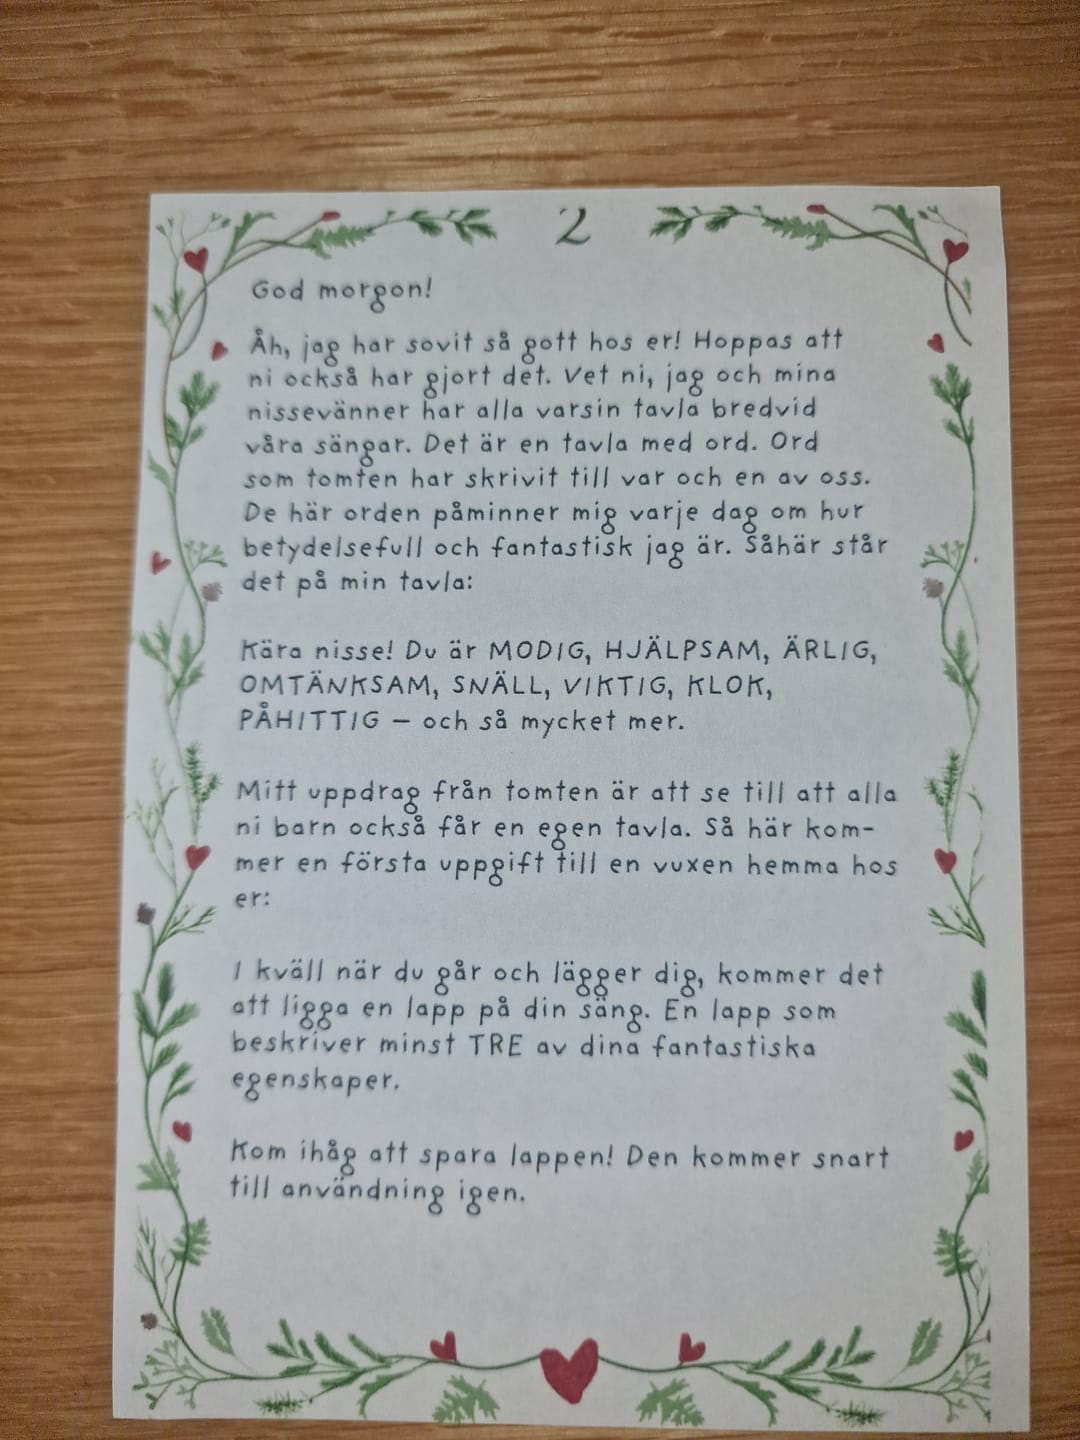 2
God morgon!
Åh, jag har sovit så gott hos er! Hoppas att
ni också har gjort det. Vet ni, jag och mina
nissevänner har alla varsin tavla bredvid
våra sängar. Det är en tavla med ord. Ord
som tomten har skrivit till var och en av oss.
De här orden påminner mig varje dag om hur
betydelsefull och fantastisk jag är. Såhär står
det på min tavla:
Kära nisse! Du är MODIG, HJÄLPSAM, ÄRLIG,
OMTÄNKSAM, SNÄLL, VIKTIG, KLOK,
PÅHITTIG – och så mycket mer.
Mitt uppdrag från tomten är att se till att alla
ni barn också får en egen tavla. Så här kom-
mer en första uppgift till en vuxen hemma hos
er:
I kväll när du går och lägger dig, kommer det
att ligga en lapp på din säng. En lapp som
beskriver minst TRE av dina fantastiska
egenskaper.
Kom ihåg att spara lappen! Den kommer snart
till användning igen.